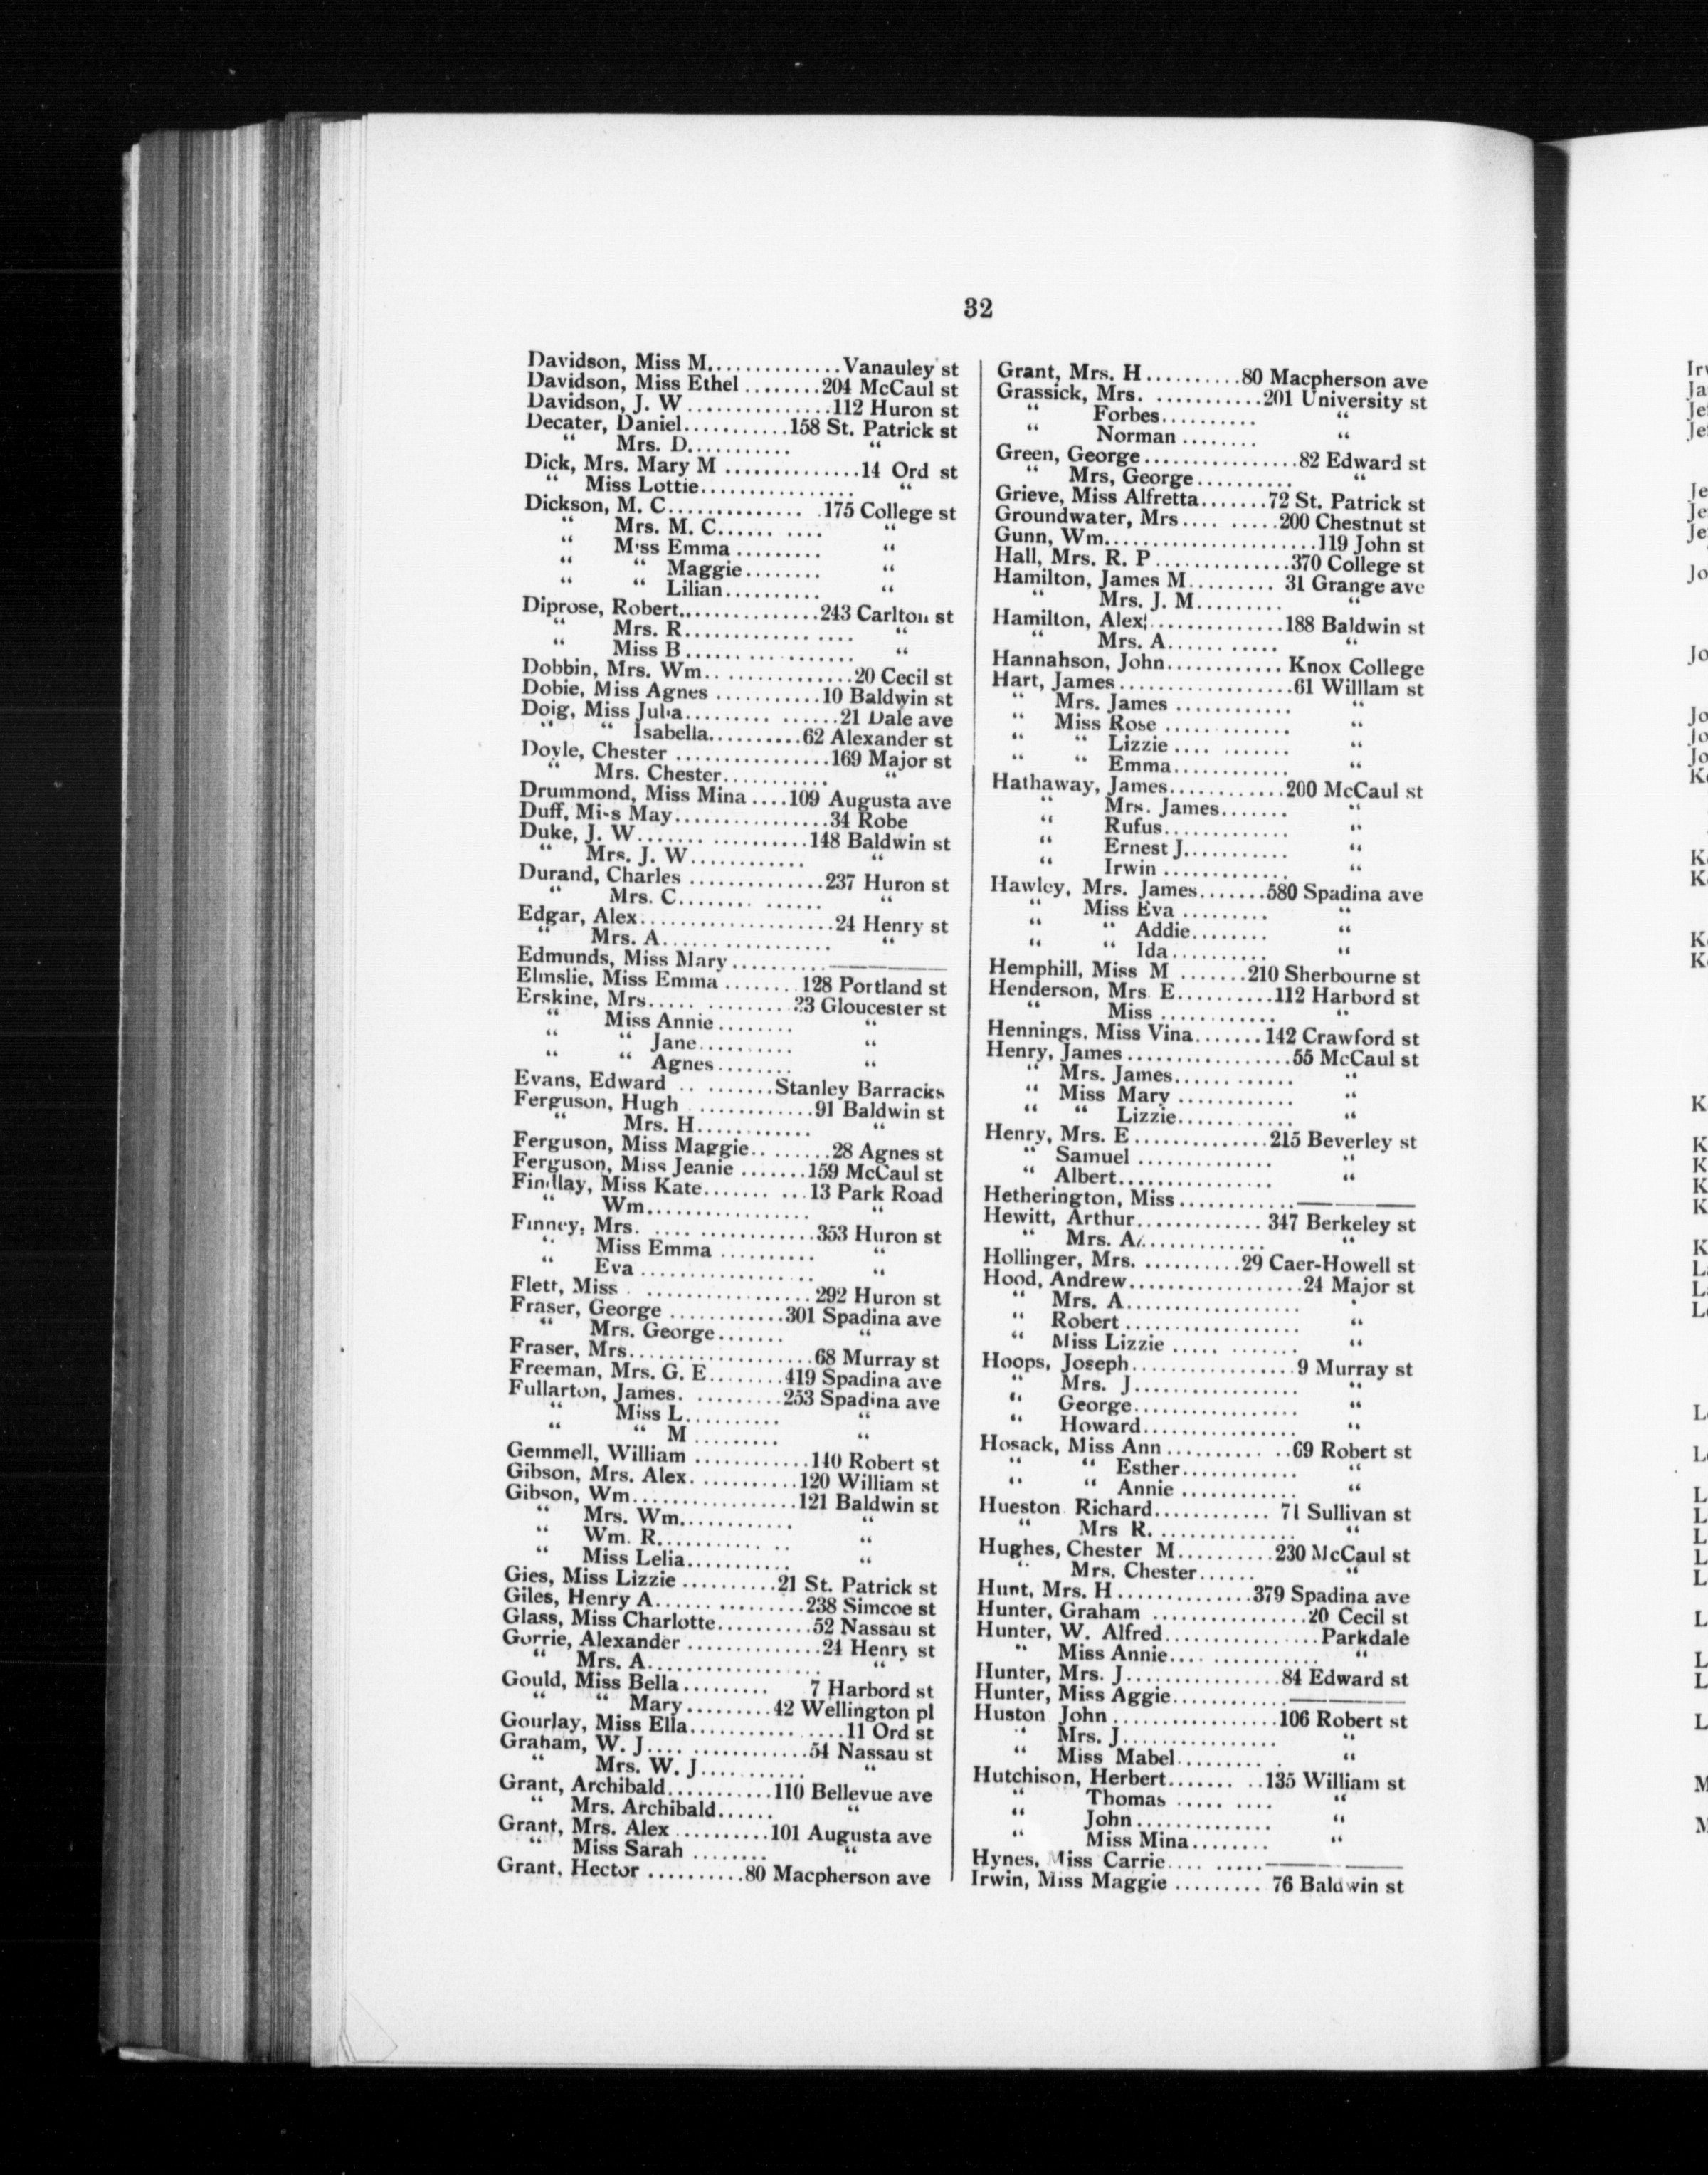 32
Davidson, Miss M..............Vanauley st
Davidson, Miss Ethel ........204 McCaul st
Davidson, J. W ...............112 Huron st
Decater, Daniel...........158 St. Patrick st
“ Mrs. D........... “
Dick, Mrs. Mary M ..............14 Ord st
“ Miss Lottie................ “
Dickson, M. C.............. .175 College st
“ Mrs. M. C...... .... “
“ Miss Emma ......... “
“ “ Maggie........ “
“ “ Lilian.......... “
Diprose, Robert...............243 Carlton st
“ Mrs. R................ .... “
“ Miss B................. “
Dobbin, Mrs. Wm.. ..............20 Cecil st
Dobie, Miss Agnes ...........10 Baldwin st
Doig, Miss Julia......... ......21 Dale ave
“ “ Isabella..........62 Alexander st
Doyle, Chester ................169 Major st
“ Mrs. Chester........... “
Drummond, Miss Mina ....109 Augusta ave
Duff, Miss May................34 Robe
Duke, J. W....... ..........148 Baldwin st
“ Mrs. J. W............ “
Durand, Charles ..............237 Huron st
“ Mrs. C........ ...... “
Edgar, Alex....................24 Henry st
“ Mrs. A................. “
Edmunds, Miss Mary..........————
Elmslie, Miss Emma ........128 Portland st
Erskine, Mrs..... .........23 Gloucester st
“ Miss Annie........ “
“ “ Jane.......... “
“ “ Agnes........ “
Evans, Edward .. .......Stanley Barracks
Ferguson, Hugh .............91 Baldwin st
“ Mrs. H............ “
Ferguson, Miss Maggie........28 Agnes st
Ferguson, Miss Jeanie .......159 McCaul st
Findlay, Miss Kate....... ...13 Park Road
“ Wm................. “
Finney, Mrs. .... ............353 Huron st
“ Miss Emma .......... “
“ Eva .................. “
Flett, Miss . .................292 Huron st
Fraser, George ............301 Spadina ave
“ Mrs. George....... “
Fraser, Mrs...................68 Murray st
Freeman, Mrs. G. E........419 Spadina ave
Fullarton, James. .........253 Spadina ave
“ Miss L.......... “
“ “ M ......... “
Gemmell, William ............140 Robert st
Gibson, Mrs. Alex. ..........120 William st
Gibson, Wm.................121 Baldwin st
“ Mrs. Wm............ “
“ Wm. R........... .. “
“ Miss Lelia........... “
Gies, Miss Lizzie ..........21 St. Patrick st
Giles, Henry A...... .........238 Simcoe st
Glass, Miss Charlotte..........52 Nassau st
Gorrie, Alexander ..............24 Henry st
“ Mrs. A.................. “
Gould, Miss Bella......... 7 Harbord st
“ “ Mary.........42 Wellington pl
Gourlay, Miss Ella........... ....11 Ord st
Graham, W. J.... ............54 Nassau st
“ Mrs. W. J........... “
Grant, Archibald...........110 Bellevue ave
“ Mrs. Archibald...... “
Grant, Mrs. Alex ..........101 Augusta ave
“ Miss Sarah ........ “
Grant, Hector ..........80 Macpherson ave
Grant, Mrs. H..........80 Macpherson ave
Grassick, Mrs. ...........201 University st
“ Forbes.......... “
“ Norman ........ “
Green, George................82 Edward st
“ Mrs, George.......... “
Grieve, Miss Alfretta.......72 St. Patrick st
Groundwater, Mrs.... .....200 Chestnut st
Gunn, Wm.......................119 John st
Hall, Mrs. R. P..............370 College st
Hamilton, James M......... 31 Grange ave
“ Mrs. J. M......... “
Hamilton, Alex..............188 Baldwin st
“ Mrs. A........... “
Hannahson, John............ Knox College
Hart, James..................61 Willlam st
“ Mrs. James ............ “
“ Miss Rose ............. “
“ “ Lizzie .... ....... “
“ “ Emma............ “
Hathaway, James............200 McCaul st
“ Mrs. James....... “
“ Rufus............. “
“ Ernest J........... “
“ Irwin ............. “
Hawley, Mrs. James.......580 Spadina ave
“ Miss Eva ......... “
“ “ Addie........ “
“ “ Ida.......... “
Hemphill, Miss M .......210 Sherbourne st
Henderson, Mrs. E..........112 Harbord st
“ Miss ............ “
Hennings, Miss Vina.......142 Crawford st
Henry, James.................55 McCaul st
“ Mrs. James............. “
“ Miss Mary ............ “
“ “ Lizzie............ “
Henry, Mrs. E..............215 Beverley st
“ Samuel .............. “
“ Albert................ “
Hetherington, Miss............————
Hewitt, Arthur............. 347 Berkeley st
“ Mrs. A............. “
Hollinger, Mrs. ..........29 Caer-Howell st
Hood, Andrew..................24 Major st
“ Mrs. A.................. “
“ Robert.................. “
“ Miss Lizzie ..... ....... “
Hoops, Joseph.................9 Murray st
“ Mrs. J................. “
“ George................. “
“ Howard................ “
Hosack, Miss Ann .......... ..69 Robert st
“ “ Esther............ “
“ “ Annie ............ “
Hueston Richard............ 71 Sullivan st
“ Mrs R. .............. “
Hughes, Chester M..........230 McCaul st
“ Mrs. Chester...... “
Hunt, Mrs. H..............379 Spadina ave
Hunter, Graham ................20 Cecil st
Hunter, W. Alfred................Parkdale
“ Miss Annie.... ........... “
Hunter, Mrs. J................84 Edward st
Hunter, Miss Aggie............————
Huston John .................106 Robert st
“ Mrs. J................ “
“ Miss Mabel.......... . “
Hutchison, Herbert....... ..135 William st
“ Thomas ..... .... “
“ John.............. “
“ Miss Mina........ “
Hynes, Miss Carrie.... .....————
Irwin, Miss Maggie ......... 76 Baldwin st